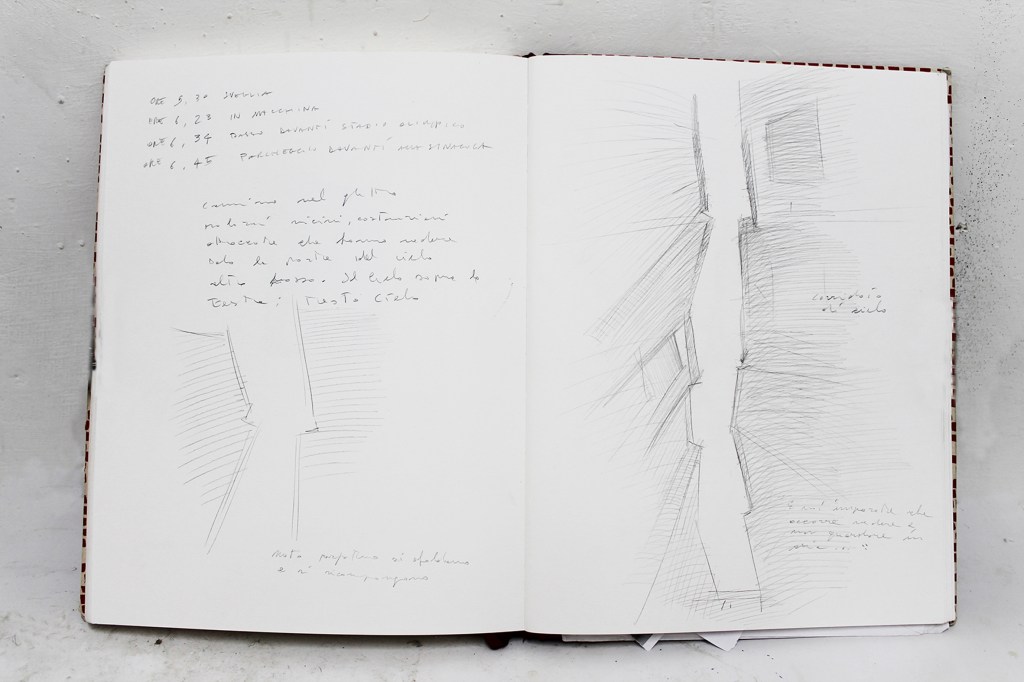 ORE 5,30 SVEGLIA
ORE 6,23 IN MACCHINA
ORE 6,34 PASSO DAVANTI STADIO OLIMPICO
ORE 6,45 PARCHEGGIO DAVANTI ALLA SINAGOGA
Cammino nel ghetto
palazzi vicini, costruzioni
che fanno vedere
solo la parte del cielo
alto. Il Cielo sopra la
Testa: Testa Cielo
corridoio
di cielo
si sfaldano
e si ricompongono
è più importante che
occorre vedere e
non guardare in